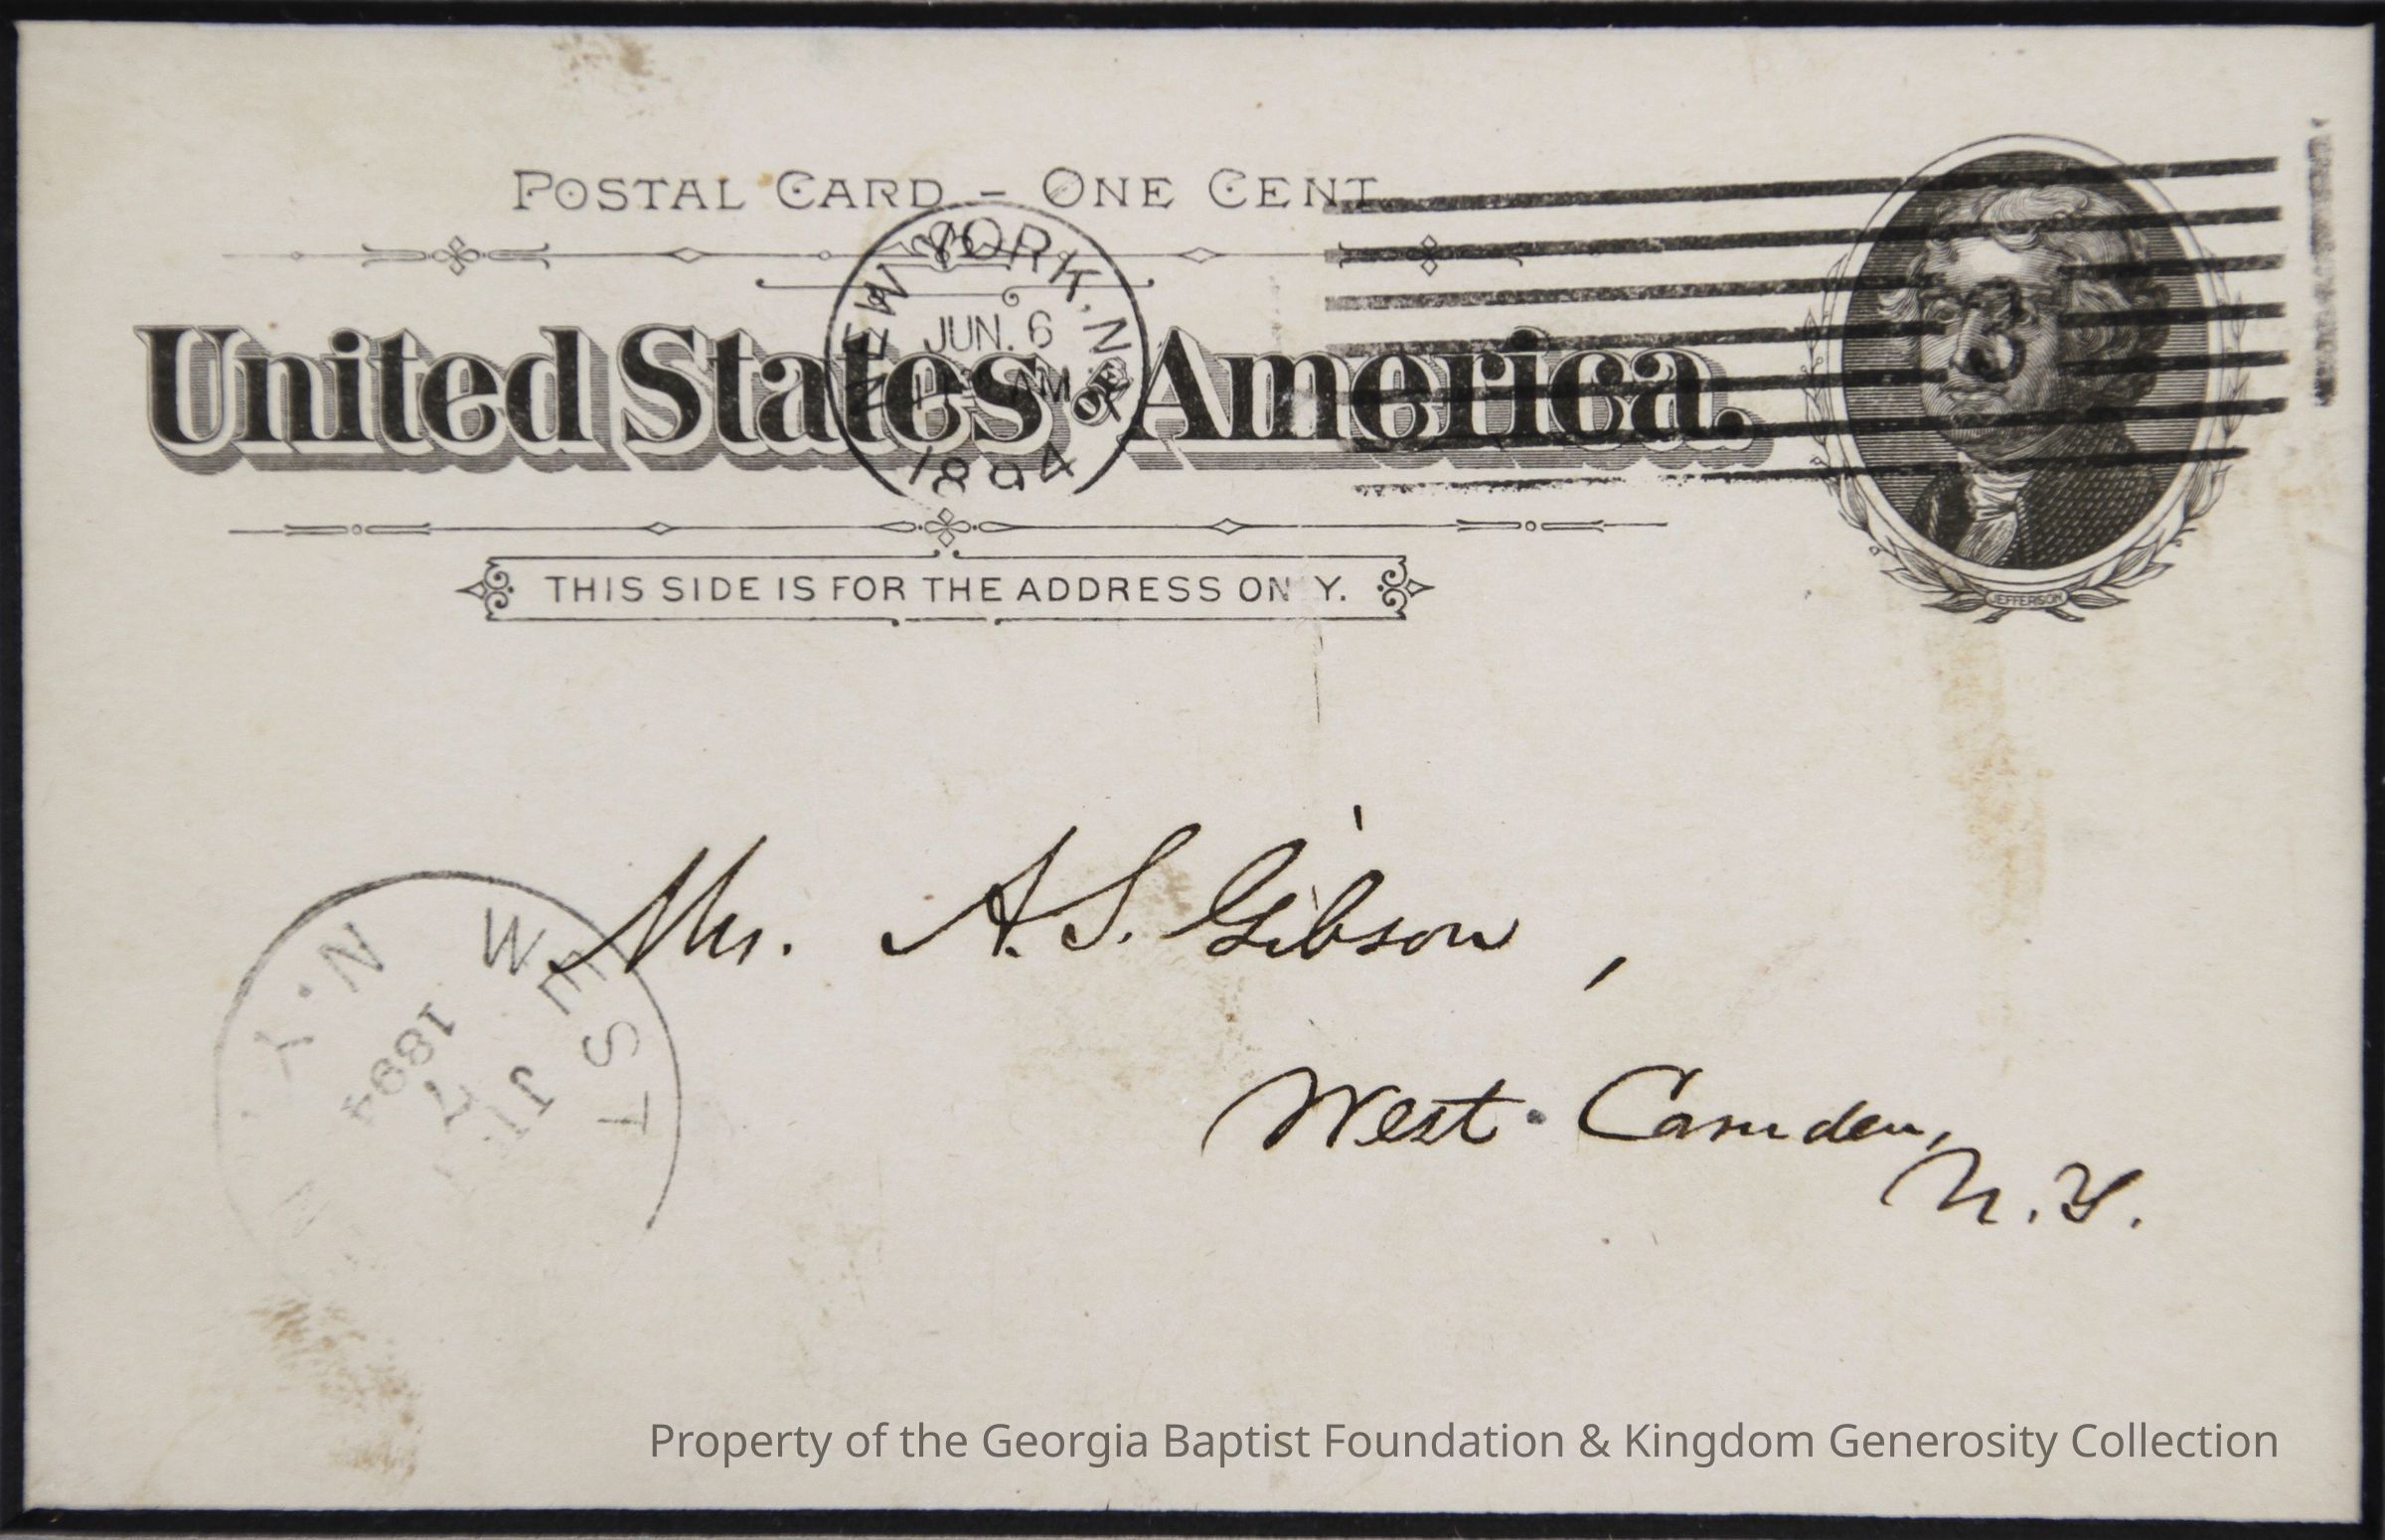 POSTAL CARD - ONE CENT
United States of America.
NEW YORK, N.Y.
JUN. 6
AM
1894
3
THIS SIDE IS FOR THE ADDRESS ON Y.
JEFFERSON
Mr. A. S. Gibson,
West Camden,
N.Y.
WEST N.Y.
7
1894
Property of the Georgia Baptist Foundation & Kingdom Generosity Collection